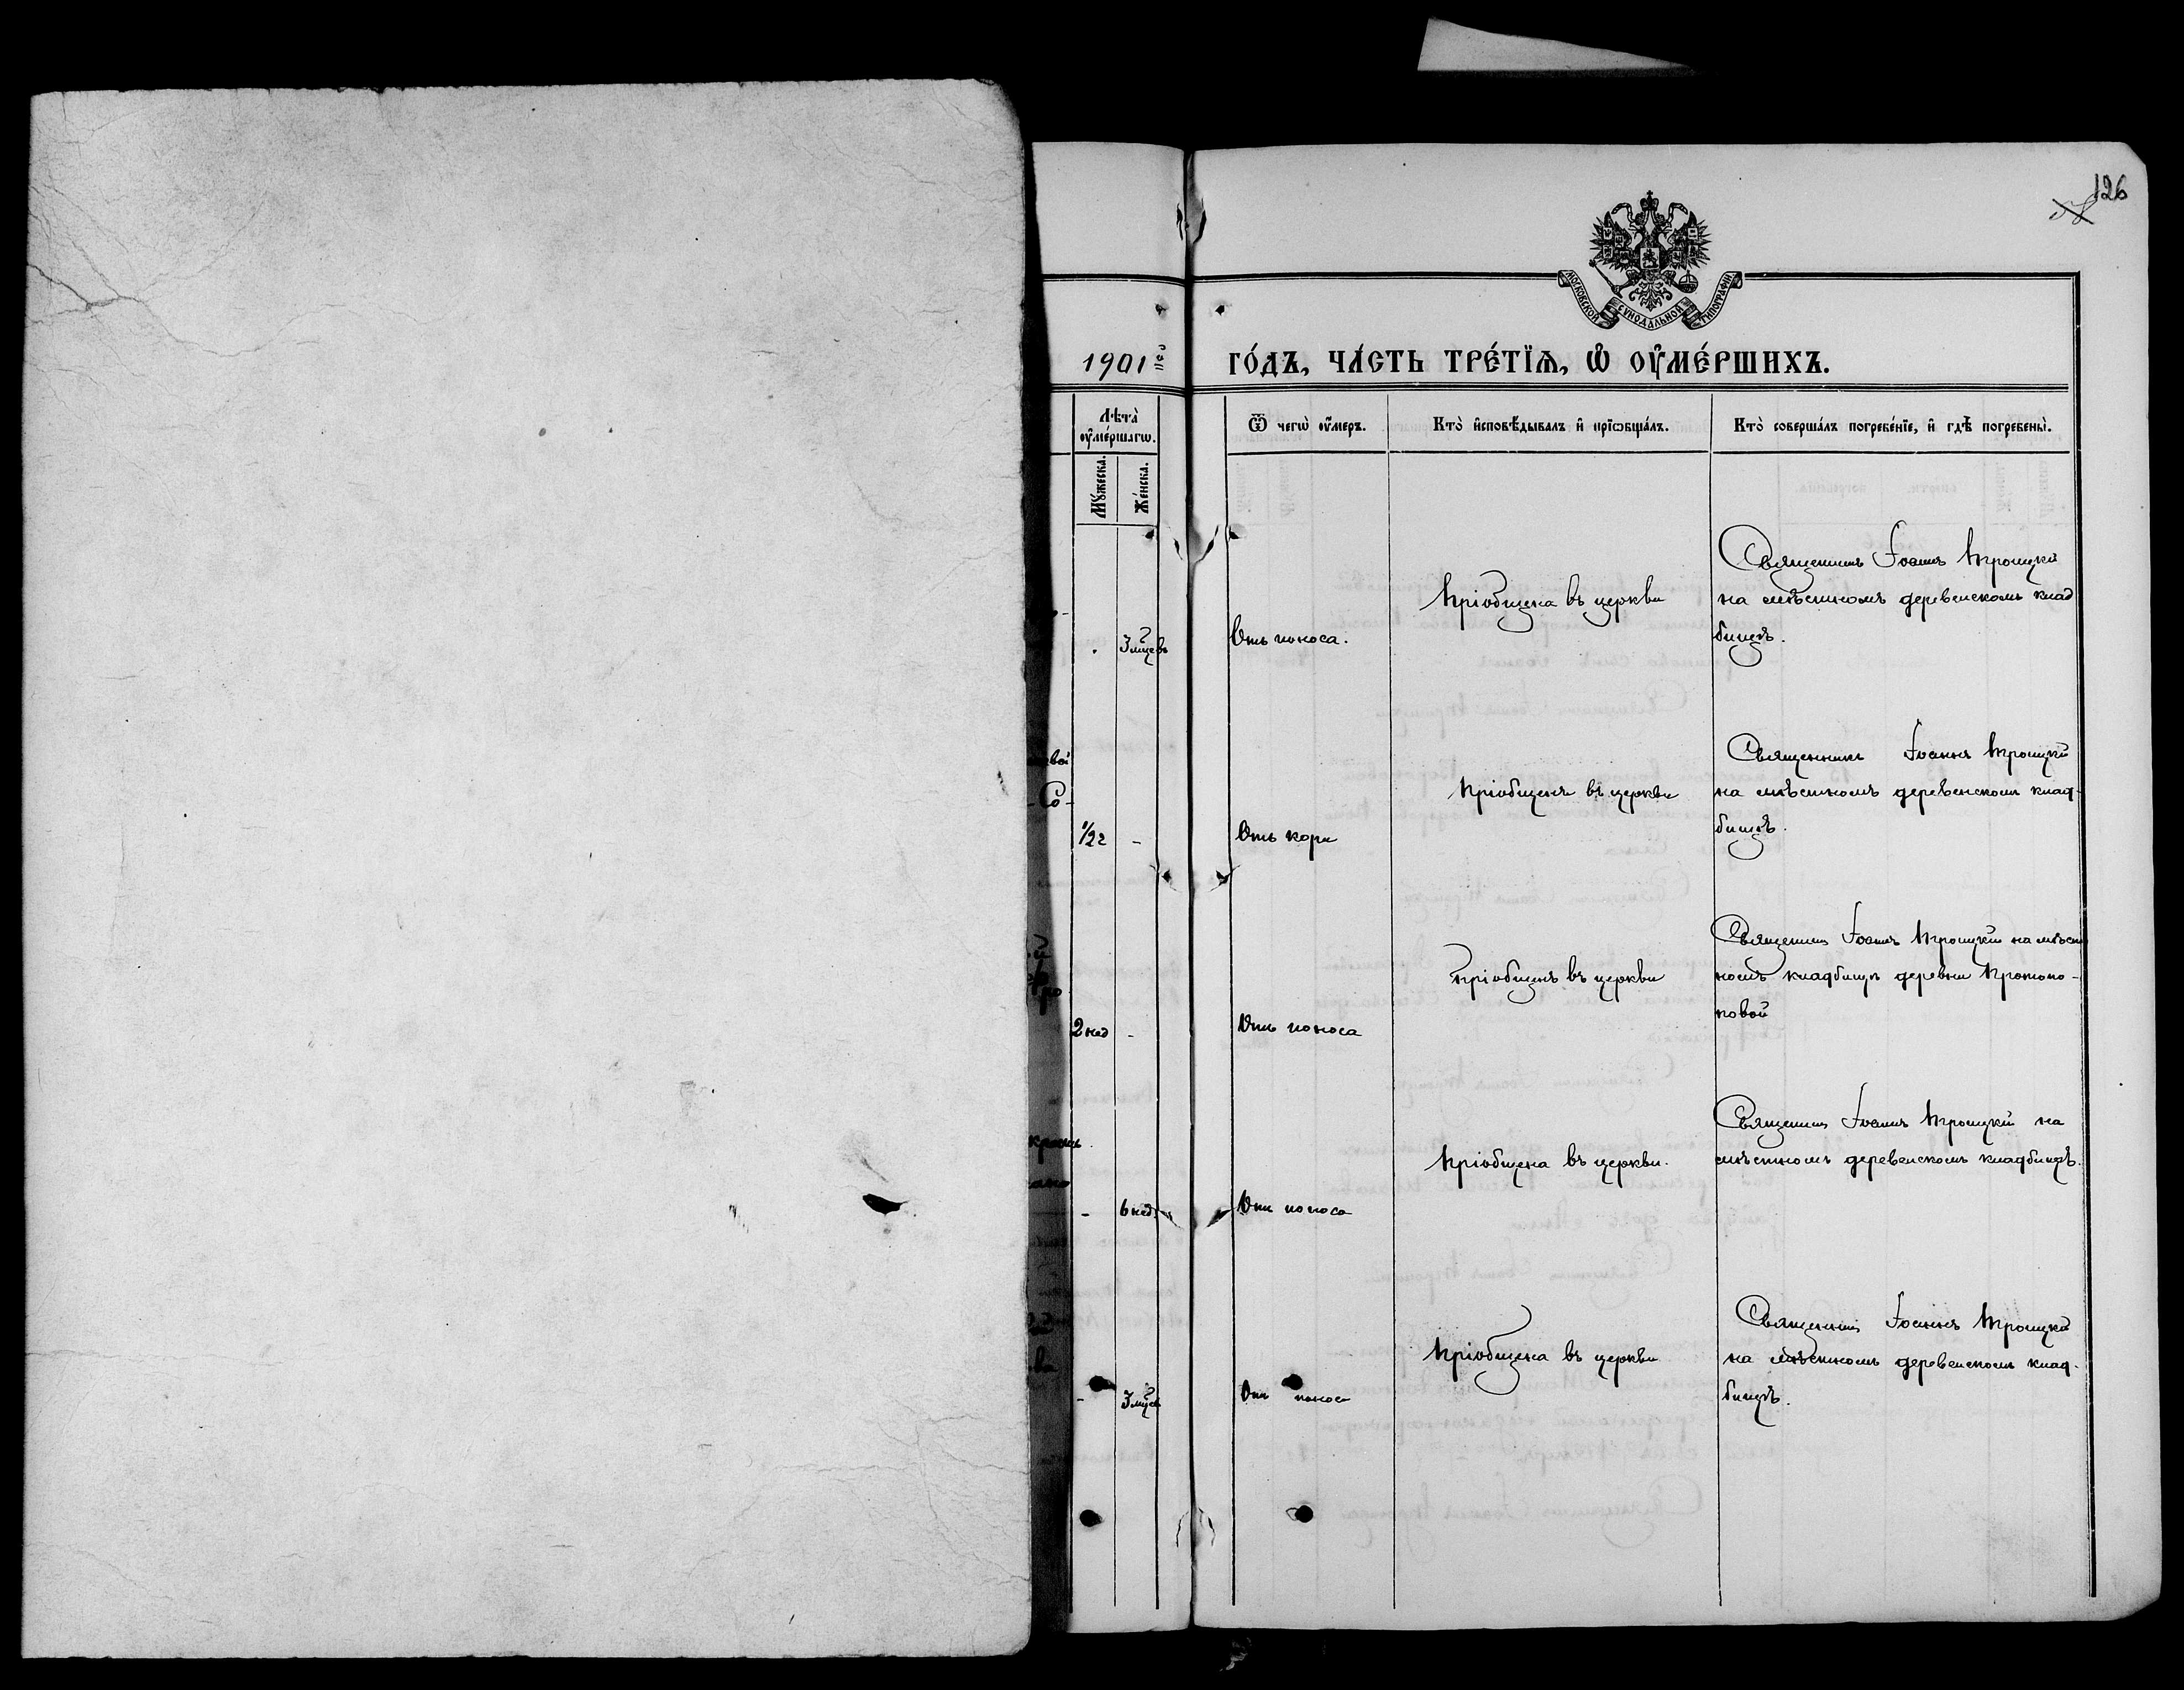 126
58
МОСКОВСКОЙ СѴНОДАЛЬНОЙ ТИПОГРАФІИ
1901го го́дъ, ча́сть тре́тїѧ, ѡ҆ ᲂу҆ме́ршихъ.
Лѣта̀ ᲂу҆ме́ршагѡ.
Мꙋ́жеска.
Же́нска.
Ѿ чегѡ̀ ᲂу҆́меръ.
Кто̀ и҆сповѣ́дывалъ и҆ прїѡбща́лъ.
Кто̀ соверша́лъ погребе́нїе, и҆ гдѣ̀ погребены̀.
3 мцевъ
Отъ поноса.
Пріобщена въ церкви
Священникъ Іоаннъ Троицкій
на мѣстномъ деревенскомъ клад
бищѣ.
вой
Со-
1/2 г
-
Отъ кори
Пріобщенъ въ церкви
Священникъ Іоаннъ Троицкій
на мѣстномъ деревенскомъ клад-
бищѣ.
2 нед
-
Отъ поноса
Пріобщенъ въ церкви
Священникъ Іоаннъ Троицкій на мѣст
номъ кладбищѣ деревни Протопо-
повой
-
6 нед.
Отъ поноса
Пріобщена въ церкви.
Священникъ Іоаннъ Троицкій на
мѣстномъ деревенскомъ кладбищѣ.
ва
-
3 мцевъ
Отъ поноса
Пріобщена въ церкви
Священникъ Іоаннъ Троицкій
на мѣстномъ деревенскомъ клад-
бищѣ.